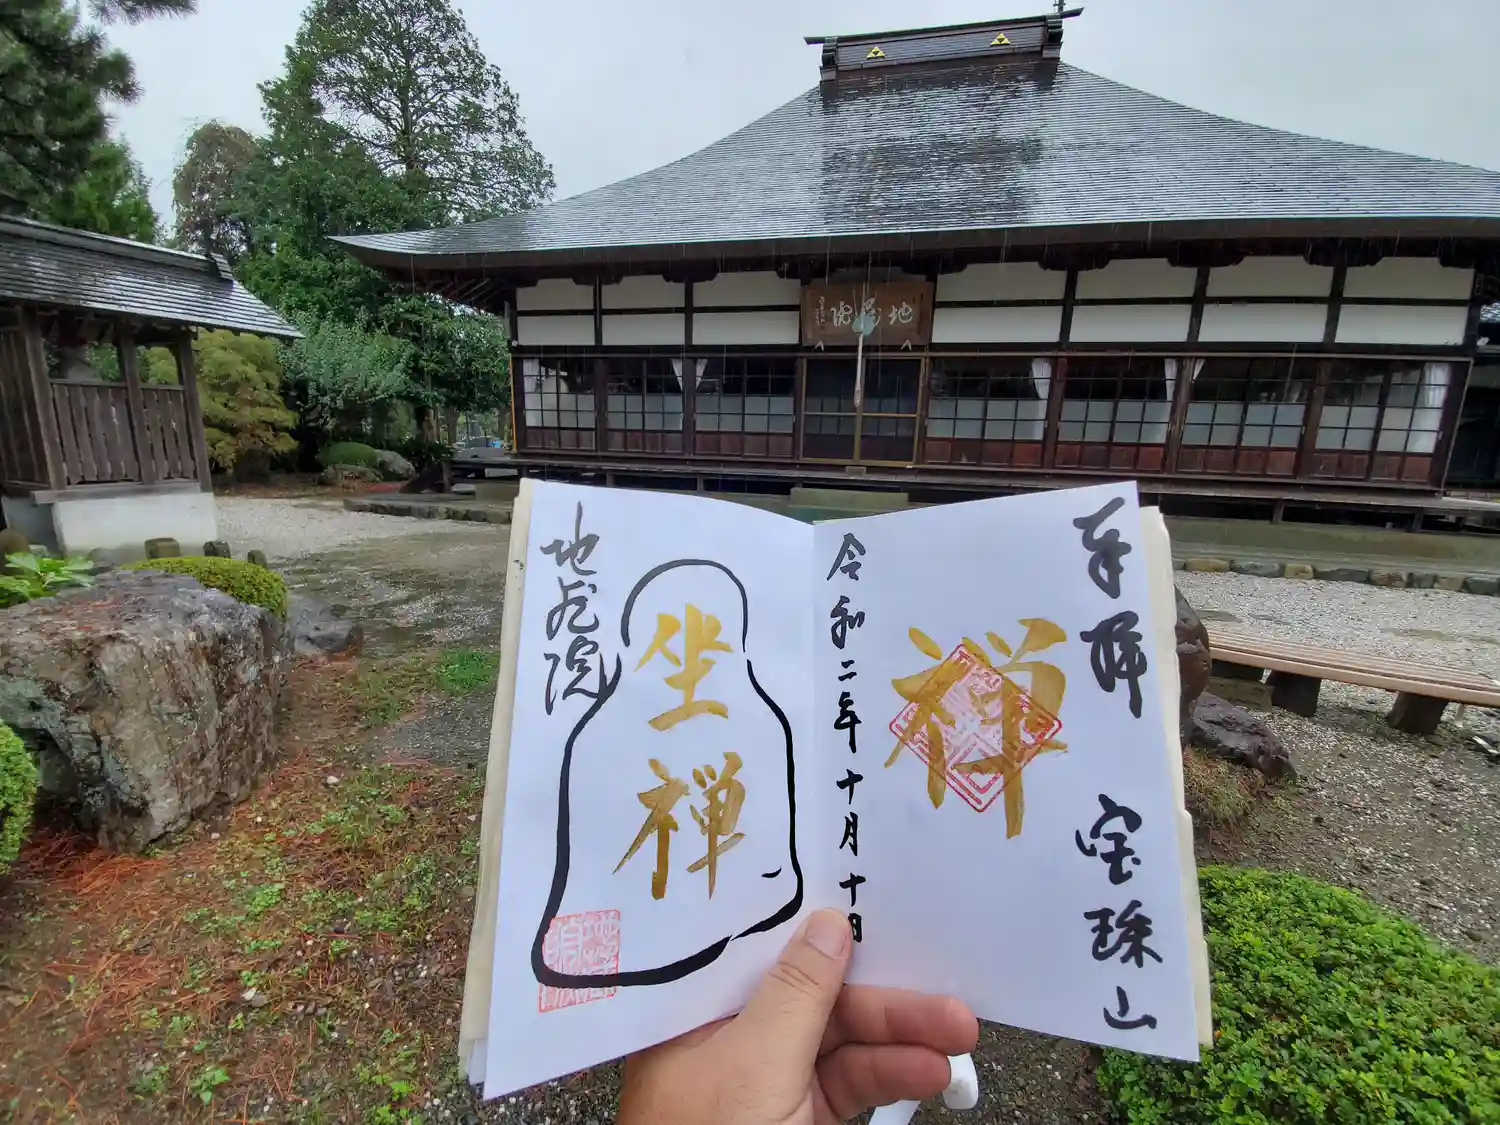 地蔵院
奉拝
宝珠山
禅
令和二年十月十日
坐禅
地蔵院